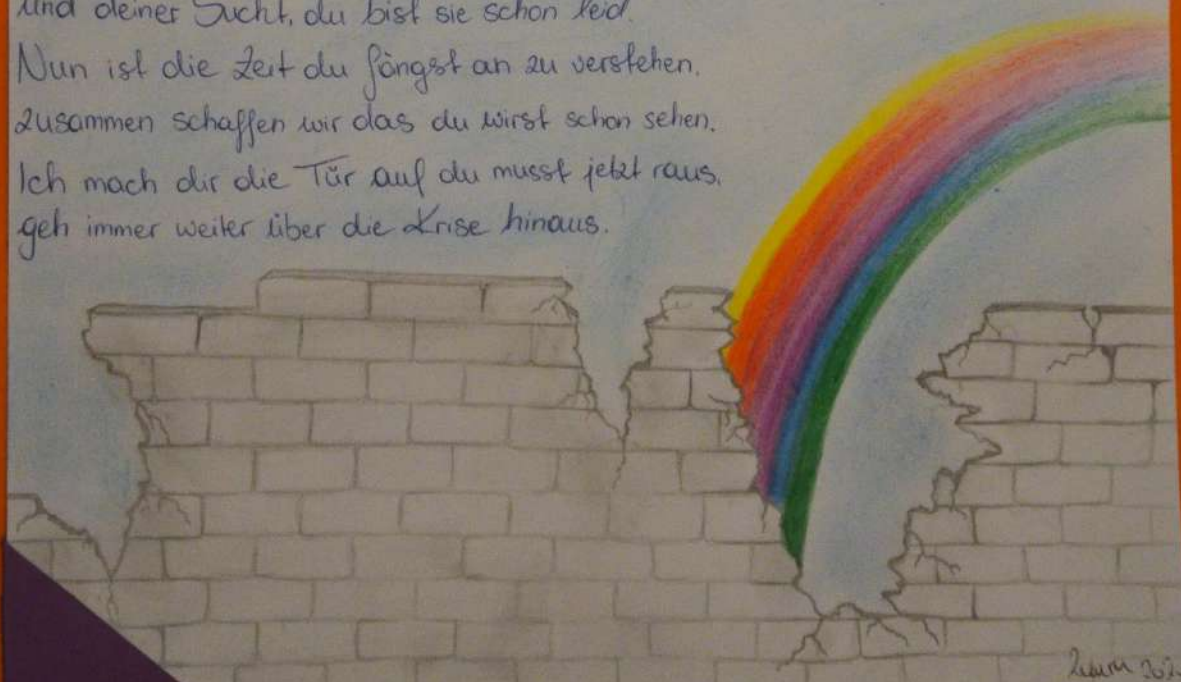 und deiner Sucht, du bist sie schon leid.
Nun ist die Zeit du fängst an zu verstehen.
Zusammen schaffen wir das du wirst schon sehen.
Ich mach dir die Tür auf du musst jetzt raus,
geh immer weiter über die Krise hinaus.